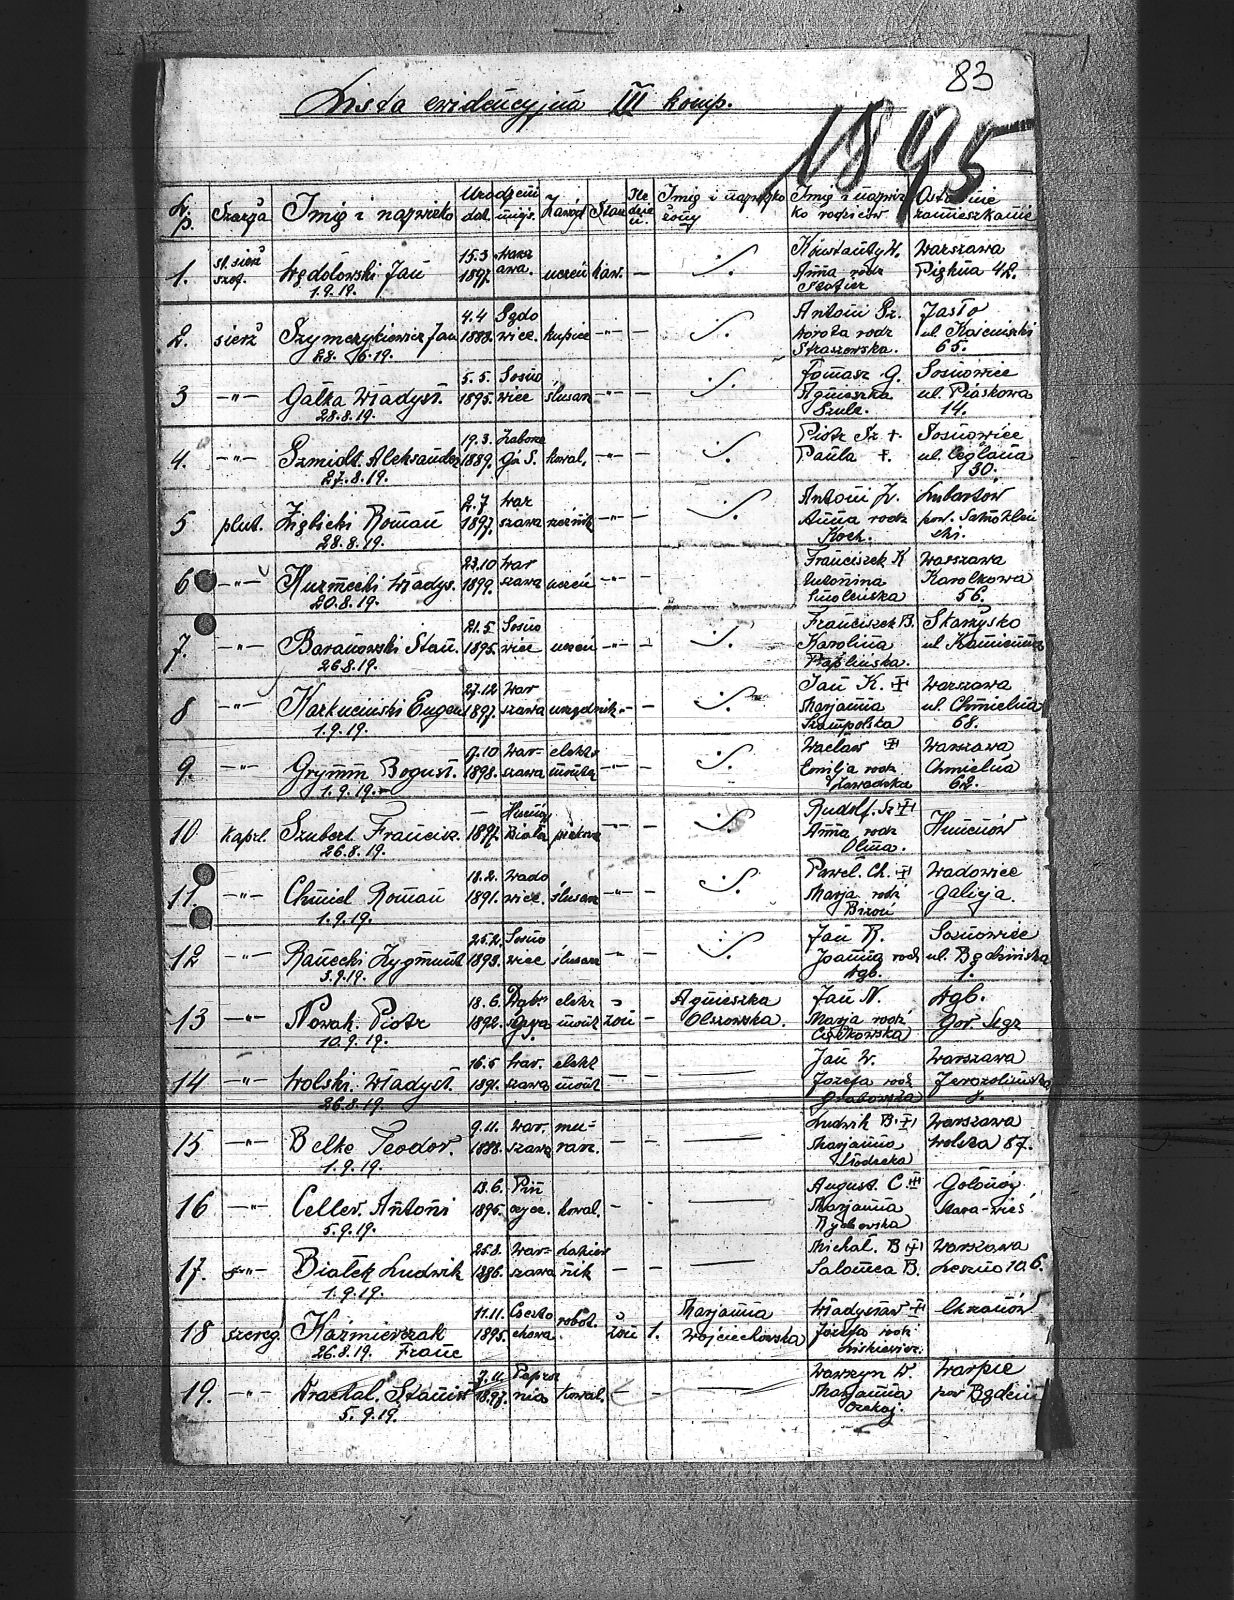 83
Lista ewidencyjna III komp.
1895
L. p. Szarża Imię i nazwisko Urodzeni dat. miejs. Zawód Stan Ile dzieci Imię i nazwisko żony Imię i nazwisko rodziców Ostatnie zamieszkanie
st. sierż 15.3 Warsz Konstanty W. Warszawa
1. szef. Wędołowski Jan 1897. awa. uczeń kaw. – Anna rodz Piękna 42.
1.9.19.
4.4 Sędo Antoni Sz. Jasło
2. sierż Szymczykiewicz Jan 1888. wice. kupiec –"– – Dorota rodz ul. Kościuszki
28. 6.19. Straszewska. 65.
5.5. Sosno Tomasz G. Sosnowice
3 –"– Gałka Władysł. 1895. wice ślusarz –"– – Agnieszka ul. Piaskowa
28.8.19. Szulc. 14.
19.3. Zabrze Piotr Sz. + Sosnowice
4. –"– Szmidt. Aleksander 1889. Gó S. kowal, –"– – Paula +. ul. Ceglana
27.8.19. 30.
2.7 War Antoni Z. Lubartów
5 plut. Zięblicki Roman 1897. szawa –"– – Anna rodz pow.
28.8.19. Koch.
23.10 War Franciszek K Warszawa
6 –"– Kuzmecki Władys. 1899. szawa uczeń –"– – Antonina Karolkowa
20.8.19. Smoleńska 56.
21.5 Sosno Franciszek B. Skarżysko
7. –"– Baranowski Stan. 1895. wice uczeń –"– – Karolina ul Kamienna
26.8.19.
27.12 War Jan K. + Warszawa
8 –"– Karkuciński Eugen 1897. szawa urzędnik –"– – Marjanna ul. Chmielna
1.9.19. Szampolska 68.
9.10 War- elektr Wacław + Warszawa
9. –"– Grymm Bogusł. 1898. szawa monter – – Emilja rodz Chmielna
1.9.19. Zawadzka 62.
– Rudolf. Sz + Kunców
10. kaprl. Szubert Francisz. 1897. Biała piekarz –"– – Anna rodz
26.8.19. Olma.
18.2. Wado Paweł. Ch. + Wadowice
11. –"– Chmiel Roman 1891. wice. ślusarz –"– – Marja rodz Galicja.
1.9.19. Brzoń
25.2. Sosno Jan R. Sosnowice
12 –"– Ranecki Zygmunt 1893. wice ślusarz –"– – Joanna rodz ul. Będzińska
3.9.19. 1.
18.6. Dąbr elektr Agnieszka Jan N. Dąb.
13 –"– Nowak. Piotr 1892. mont żon – Olszowska. Marja rodz Gór
10.9.19.
16.5 War. elekt Jan W. Warszawa
14 –"– Wolski. Władysł. 1891. szawa mont – – Józefa rodz Jerozolimska
26.8.19. Grabowska
9.11. War. mu- Ludwik B. + Warszawa
15 –"– Belke Teodor. 1888. szawa rarz. – – Marjanna Wolska 67.
1.9.19.
13.6. Piń August. C. Gołonóg
16 –"– Celler. Antoni 1895. czyce. kowal. – Marjanna Stara-wieś
5.9.19. Rychowska
25.8. War- Lakier Michał. B + Warszawa
17. –"– Białek Ludwik 1896. szawa nik – – Salomea B. Leszno 106.
1.9.19.
11.11. Często robot. Marjanna Władysław + Chrzanów
18 szereg Kaźmierczak 1895. chowa. żon 1. Wojciechowska Józefa rodz
26.8.19. Franc
7.11. Wawrzyn W. Warpie
19. –"– Wrachal. Stanisł 1897. kowal. – – Marjanna pow Będzin
5.9.19.